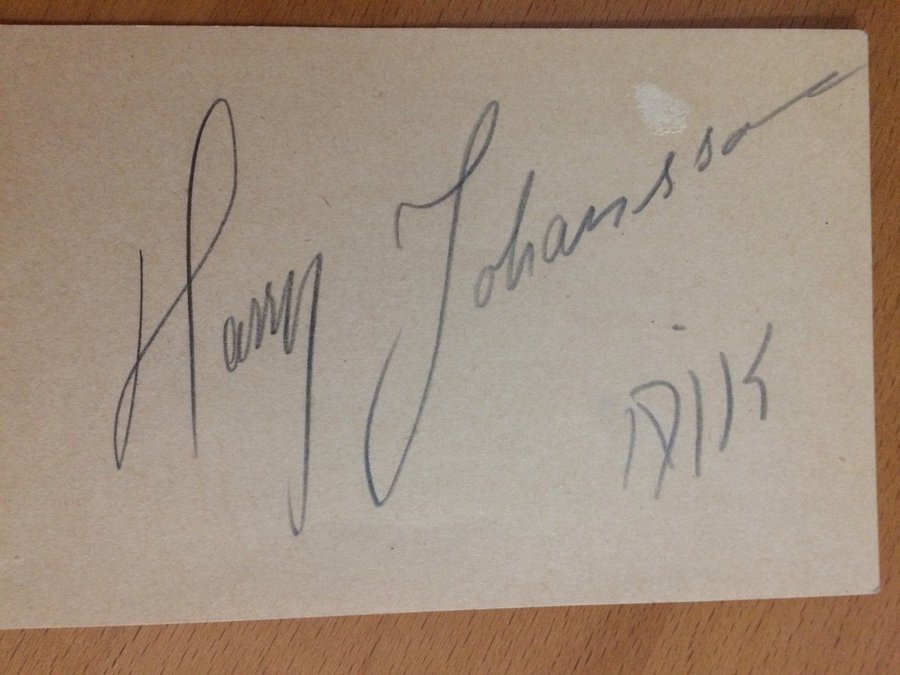 Harry Johansson
AIK